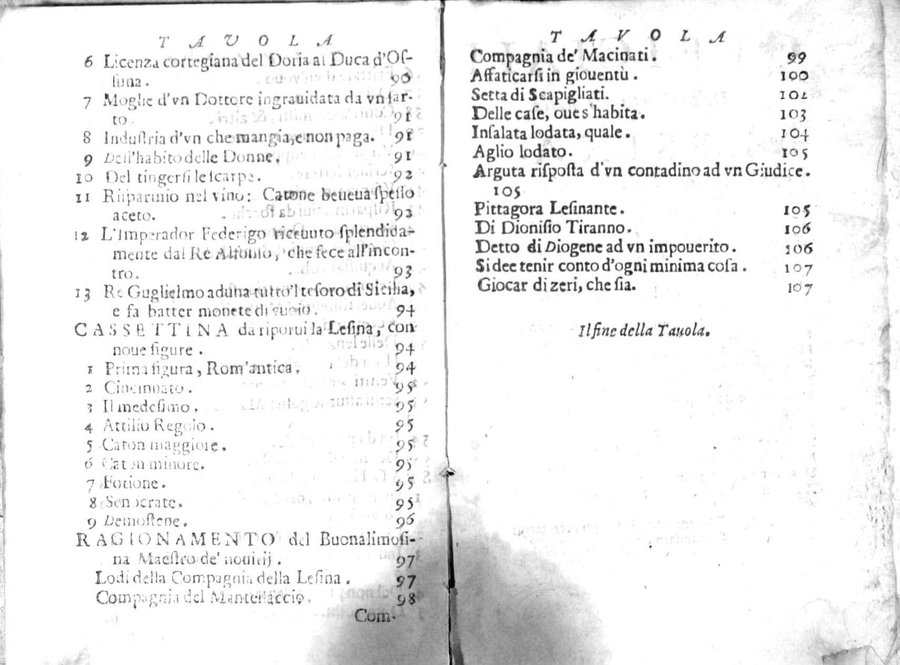 TAVOLA
6 Licenza cortegiana del Doria al Duca d'Oſ-
ſuna. 90
7 Moglie d'vn Dottore ingrauidata da vn ſar-
to. 91
8 Induſtria d'vn che mangia, e non paga. 91
9 Dell'habito delle Donne. 91
10 Del tingerſi le ſcarpe. 92
11 Riſparmio nel vino: Catone beueua ſpeſſo
aceto. 92
12 L'Imperador Federigo riceuuto ſplendida-
mente dal Rè Alfonſo, che fece all'incon-
tro. 93
13 Re Guglielmo aduna tutto'l teſoro di Sicilia,
e fa batter monete di cuoio. 94
CASSETTINA da riporui la Leſina, con
noue figure. 94
1 Prima figura, Rom'antica. 94
2 Cincinnato. 95
3 Il medeſimo. 95
4 Attilio Regolo. 95
5 Caton maggiore. 95
6 Caton minore. 95
7 Fotione. 95
8 Senocrate. 95
9 Demoſtene. 96
RAGIONAMENTO del Buonalimoſi-
na Maeſtro de' nouitij. 97
Lodi della Compagnia della Leſina. 97
Compagnia del Mantellaccio. 98
Com-
TAVOLA
Compagnia de' Macinati. 99
Affaticarſi in giouentù. 100
Setta di Scapigliati. 102
Delle caſe, oue s'habita. 103
Inſalata lodata, quale. 104
Aglio lodato. 105
Arguta riſpoſta d'vn contadino ad vn Giudice.
105
Pittagora Leſinante. 105
Di Dioniſio Tiranno. 106
Detto di Diogene ad vn impouerito. 106
Si dee tenir conto d'ogni minima coſa. 107
Giocar di zeri, che ſia. 107
Il fine della Tauola.